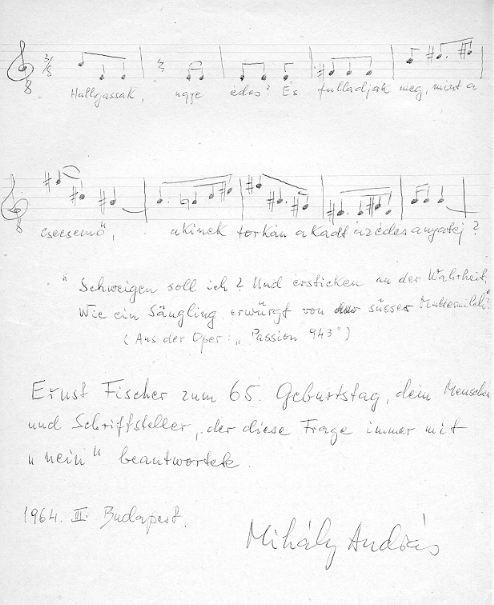 Hallgassak, ugye édes? És fulladjak meg, mint a
csecsemő, akinek torkán akadt az édes anyatej?
"Schweigen soll ich? Und ersticken an der Wahrheit,
Wie ein Säugling erwürgt von süsser Muttermilch?"
(Aus der Oper: „Passion 943")
Ernst Fischer zum 65. Geburtstag, dem Menschen
und Schriftsteller, der diese Frage immer mit
„nein" beantwortete.
1964. III. Budapest.
Mihály András